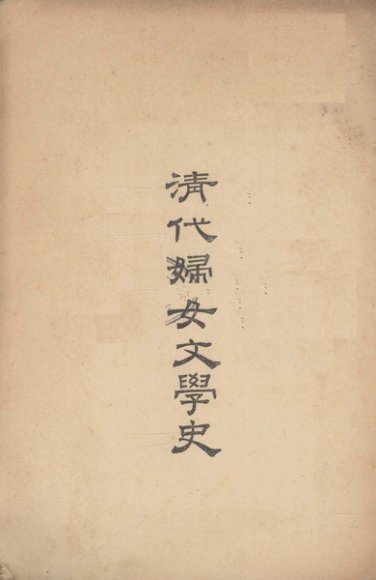 清代婦女文學史